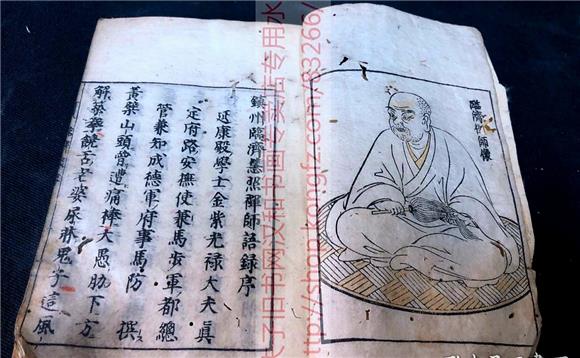 臨濟師像
鎮州臨濟慧照禪師語録序
延康殿學士金紫光禄大夫眞
定府路安撫使兼馬步軍都總
管兼知成德軍府事馬防 撰
黃檗山頭曾遭痛棒大愚肋下方
解築拳饒舌老婆尿牀鬼子這風
子旧书网汉和书画专卖店专用水
http://shop.kongfz.com/83266/